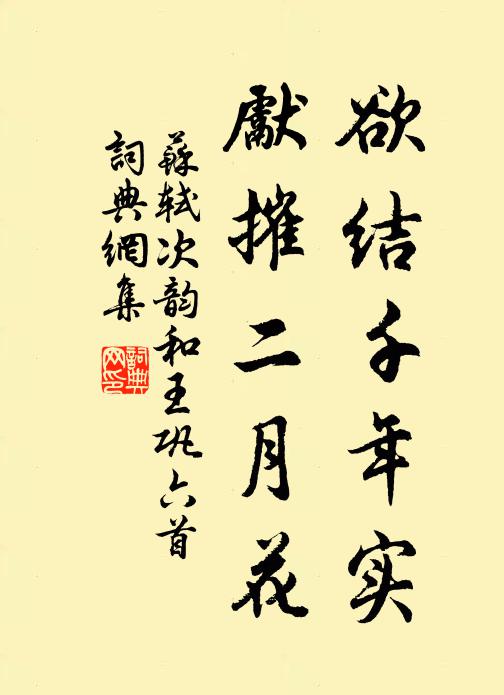 欲结千年实
獻摧二月花
蘇軾次韵和王巩六首
詞典網集
詞典网印